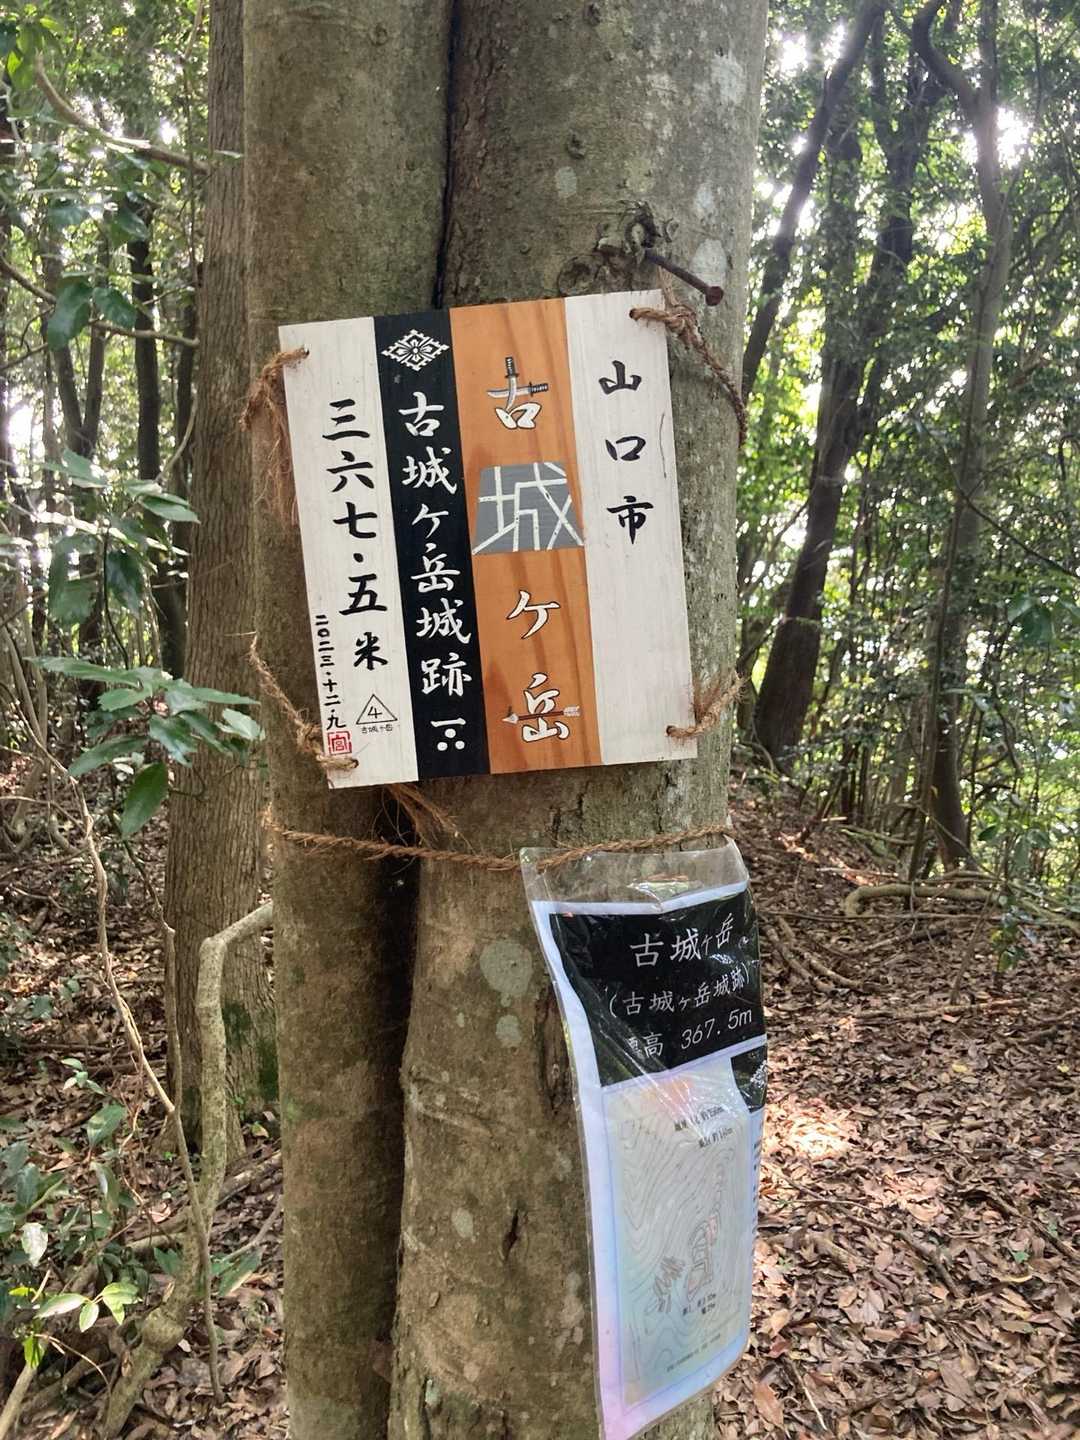 山口市
古城ヶ岳
古城ヶ岳城跡
三六七・五米
4
古城ヶ岳
二〇二三・十二・九
宮
古城ヶ岳
(古城ヶ岳城跡)
標高 367.5m